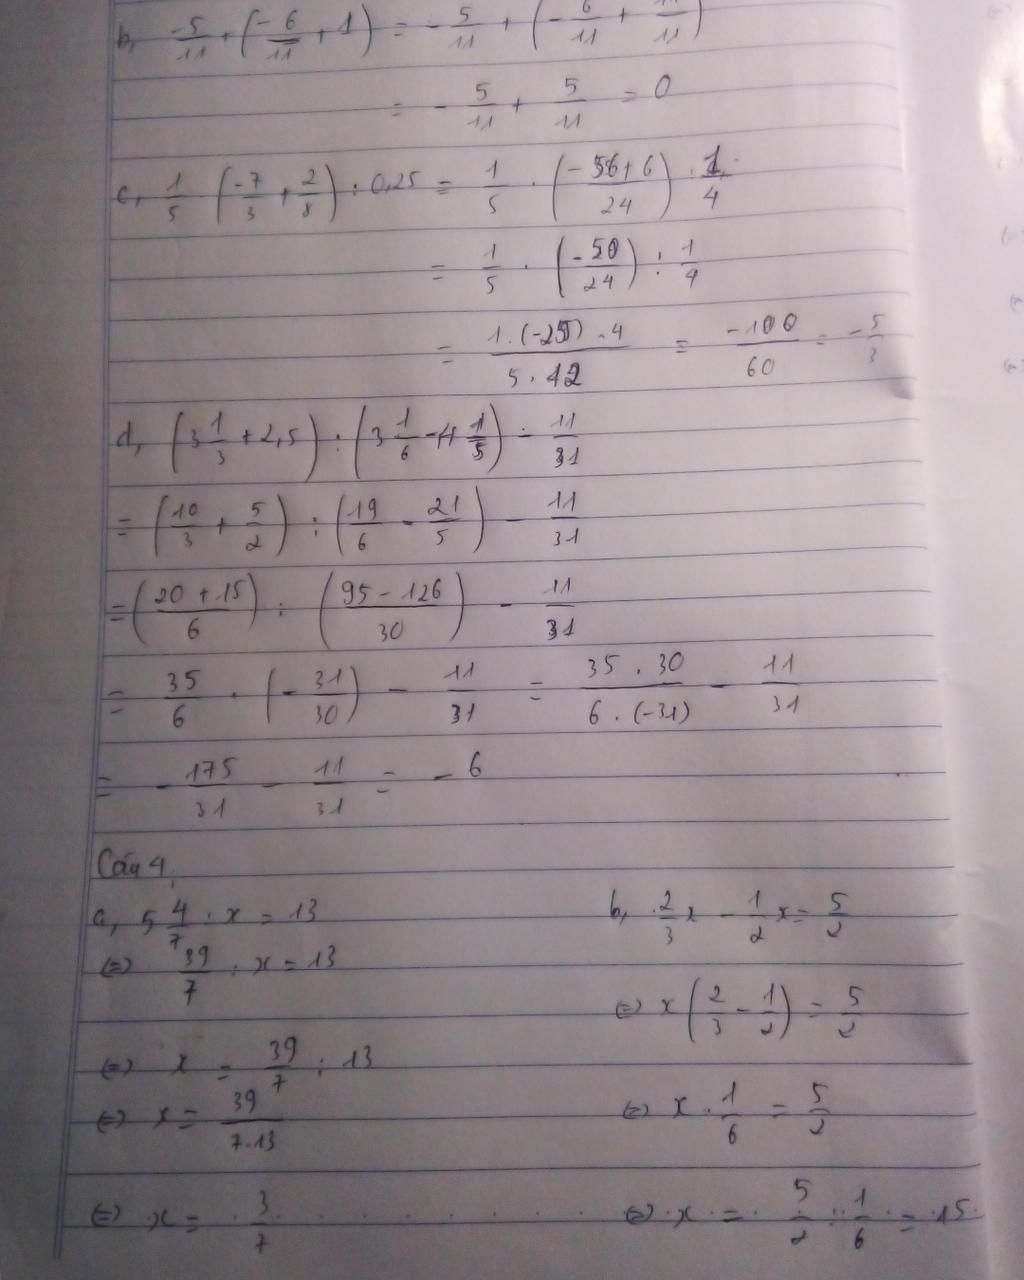 b, -5/11 + (-6/11 + 1) = -5/11 + (-6/11 + 11/11)
= -5/11 + 5/11 = 0
c, 1/5 (-7/3 + 2/8) : 0,25 = 1/5 . (-56+6/24) : 1/4
= 1/5 . (-50/24) : 1/4
= 1.(-25).4/5.12 = -100/60 = -5/3
d, (3 1/3 + 2,5) : (3 1/6 - 4 1/5) - 11/31
= (10/3 + 5/2) : (19/6 - 21/5) - 11/31
= (20 + 15/6) : (95 - 126/30) - 11/31
= 35/6 . (-31/30) - 11/31 = 35 . 30/6 . (-31) - 11/31
= -175/31 - 11/31 = -6
Câu 4,
a, 5 4/7 : x = 13
(=) 39/7 : x = 13
(=) x = 39/7 : 13
(=) x = 39/7.13
(=) x = 3/7
b, 2/3 x - 1/2 x = 5/2
(=) x (2/3 - 1/2) = 5/2
(=) x . 1/6 = 5/2
(=) x = 5/2 : 1/6 = 15